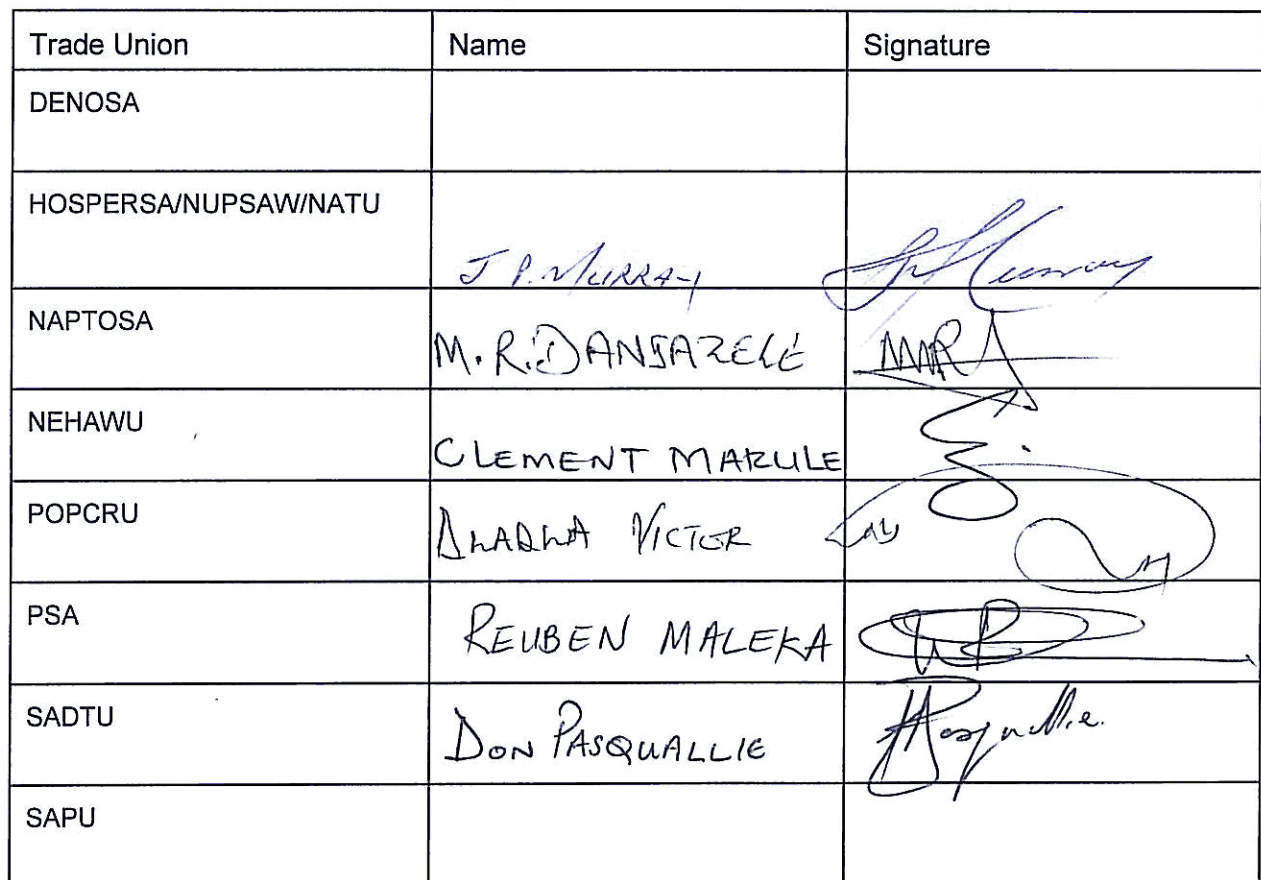 Trade Union Name Signature
DENOSA
HOSPERSA/NUPSAW/NATU
J P. MURRAY
NAPTOSA
M. R. DANTAZELE
NEHAWU
CLEMENT MARULE
POPCRU
DLADLA VICTER
PSA
REUBEN MALEKA
SADTU
DON PASQUALLIE
SAPU